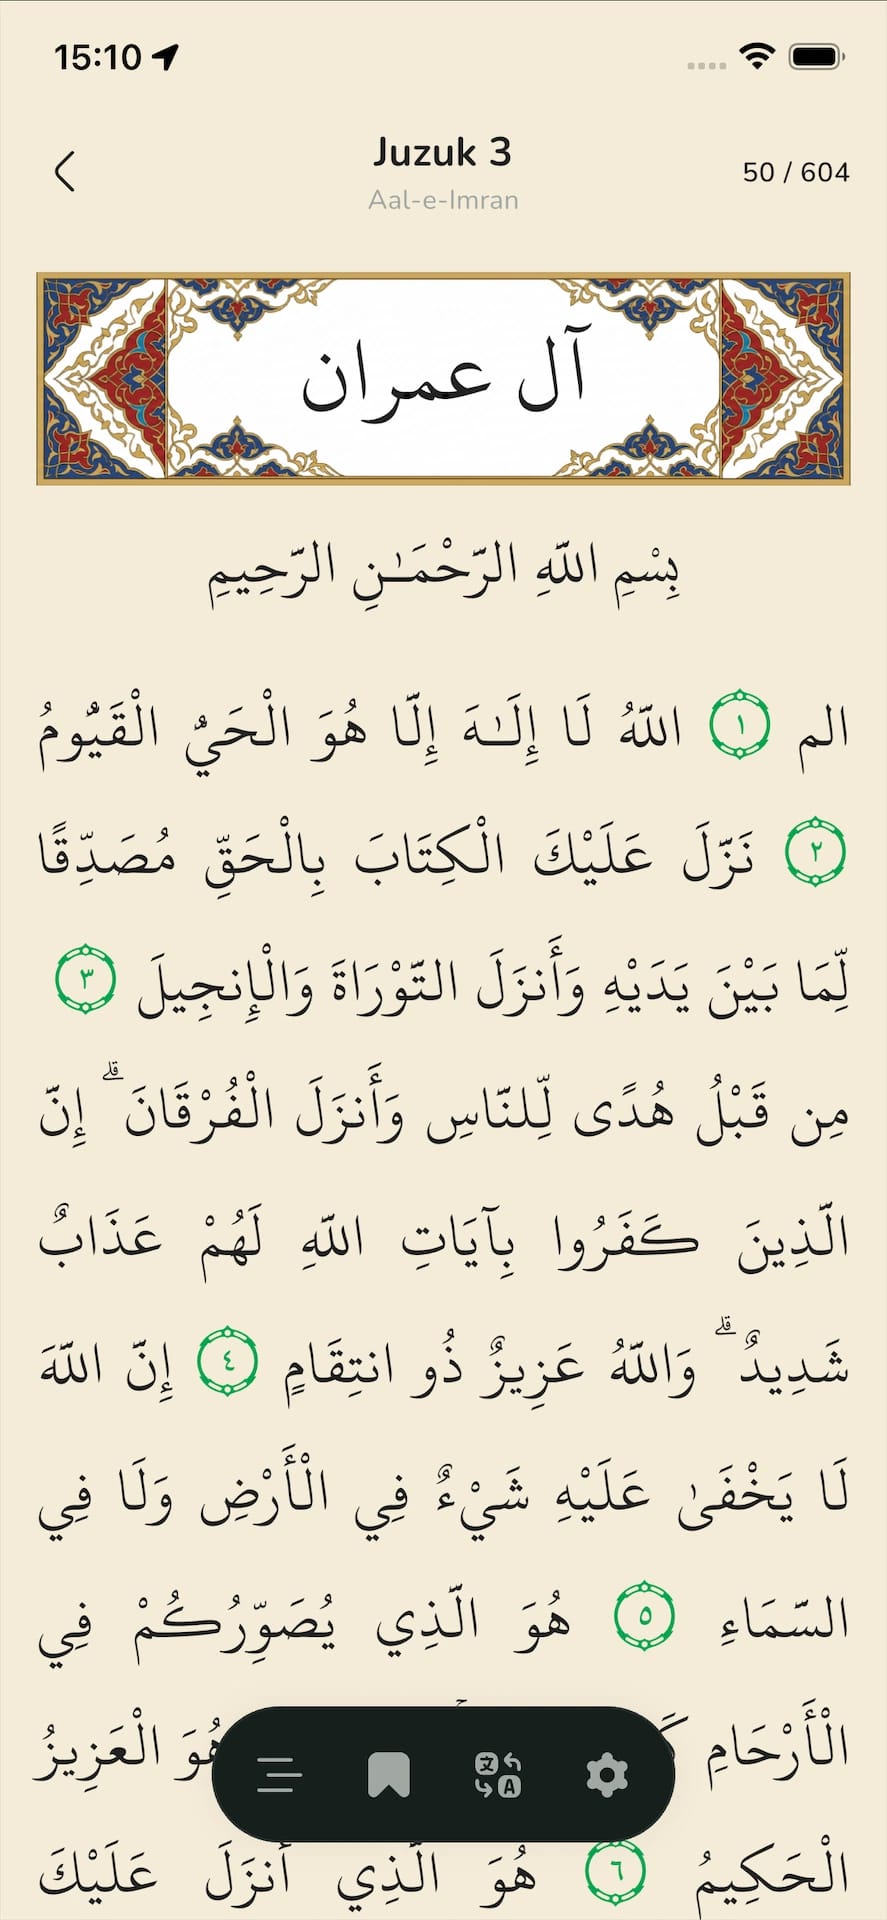 15:10
Juzuk 3
Aal-e-Imran
50 / 604
آل عمران
بِسْمِ اللَّهِ الرَّحْمَـٰنِ الرَّحِيمِ
الم ١ اللَّهُ لَا إِلَـٰهَ إِلَّا هُوَ الْحَيُّ الْقَيُّومُ
٢ نَزَّلَ عَلَيْكَ الْكِتَابَ بِالْحَقِّ مُصَدِّقًا
لِّمَا بَيْنَ يَدَيْهِ وَأَنزَلَ التَّوْرَاةَ وَالْإِنجِيلَ ٣
مِن قَبْلُ هُدًى لِّلنَّاسِ وَأَنزَلَ الْفُرْقَانَ ۗ إِنَّ
الَّذِينَ كَفَرُوا بِآيَاتِ اللَّهِ لَهُمْ عَذَابٌ
شَدِيدٌ ۗ وَاللَّهُ عَزِيزٌ ذُو انتِقَامٍ ٤ إِنَّ اللَّهَ
لَا يَخْفَىٰ عَلَيْهِ شَيْءٌ فِي الْأَرْضِ وَلَا فِي
السَّمَاءِ ٥ هُوَ الَّذِي يُصَوِّرُكُمْ فِي
الْأَرْحَامِ هُوَ الْعَزِيزُ
الْحَكِيمُ ٦ هُوَ الَّذِي أَنزَلَ عَلَيْكَ